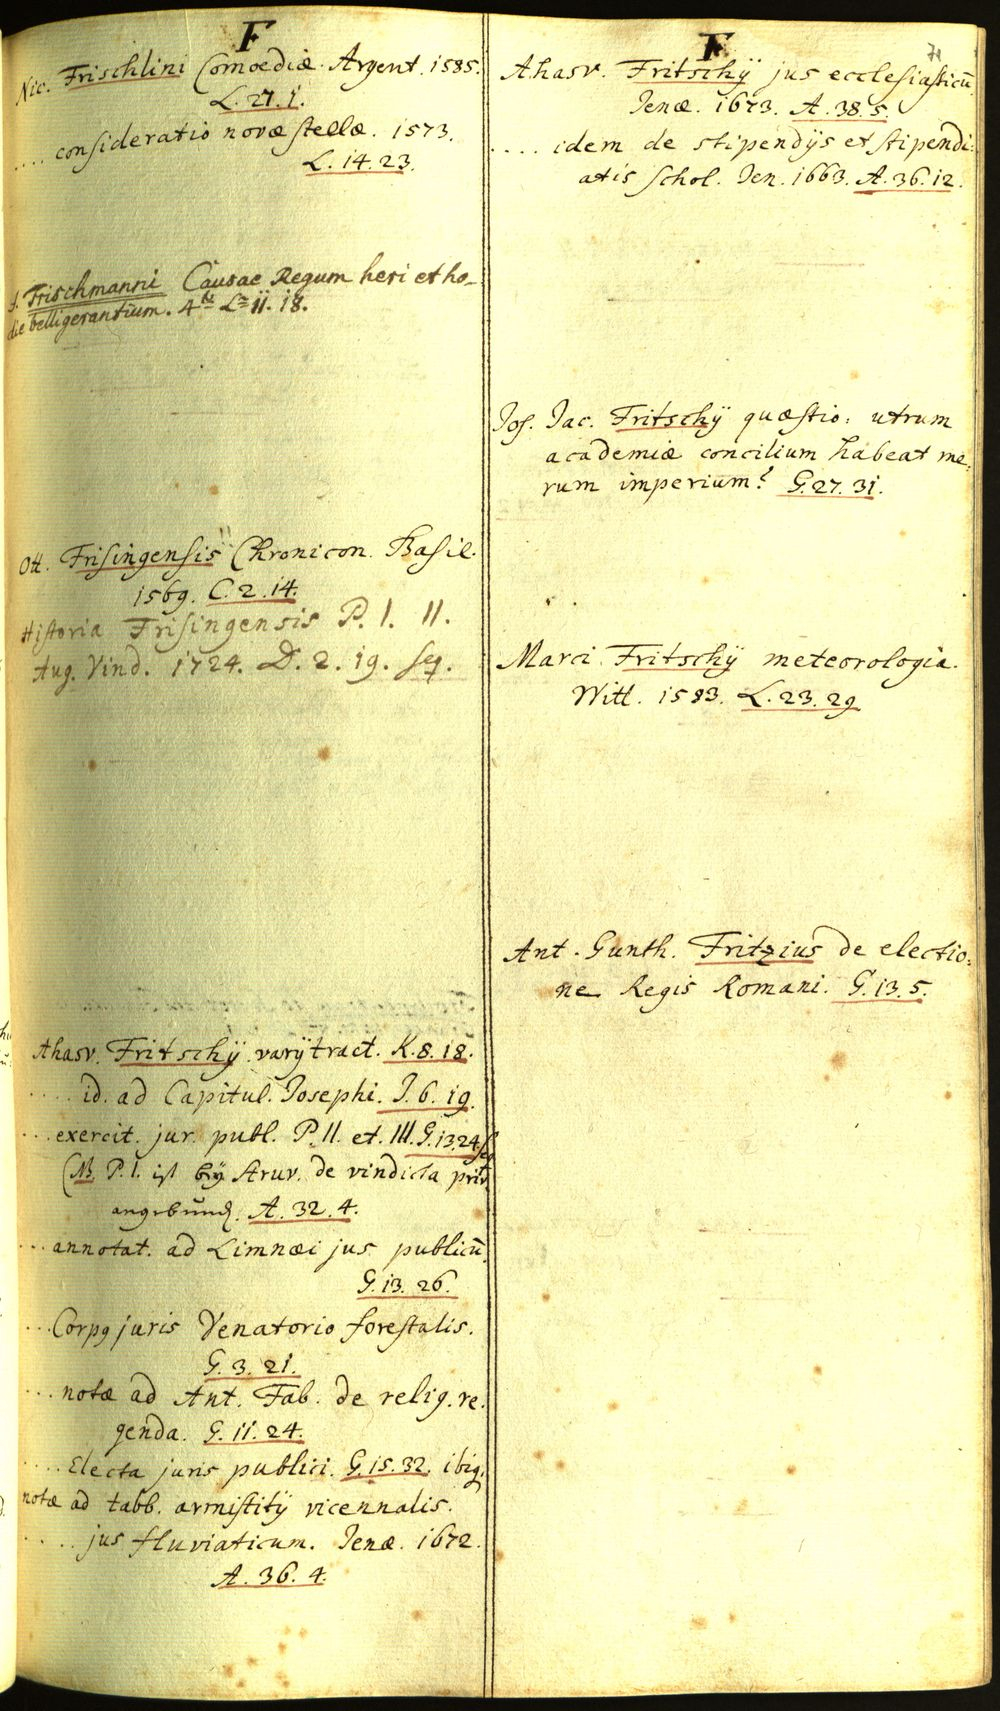 F
Nic. Frischlini Comoediæ. Argent. 1585.
L. 27. 1.
.... consideratio novæ stellæ. 1573.
L. 14. 23.
J. Frischmanni Causae Regum heri et ho-
die belligerantium. 4to L. 11. 18.
Ott. Frisingensis Chronicon. Basil.
1569. C. 2. 14.
Historia Frisingensis P. I. II.
Aug. Vind. 1724. D. 2. 19. seq.
Ahasv. Fritschÿ varÿ tract. K. 8. 18.
.... id. ad Capitul. Josephi. J. 6. 19.
... exercit. jur. publ. P. II. et. III. G. 13. 24. seq
(NB. P. I. ist beÿ Struv. de vindicta priv.
angebund. A. 32. 4.
... annotat. ad Limnæi jus publicū.
G. 13. 26.
... Corpq juris Venatorio forestalis.
G. 3. 21.
... notæ ad Ant. Fab. de relig. re:
genda. G. 11. 24.
.... Electa juris publici. G. 15. 32. ibiq.
notæ ad tabb. armistitÿ vicennalis.
.... jus fluviaticum. Jenæ. 1672.
A. 36. 4.
F
Ahasv. Fritschÿ jus ecclesiasticū
Jenæ. 1673. A. 38. 5.
.... idem de stipendÿs et stipendi:
atis schol. Jen. 1663. A. 36. 12.
Jos. Jac. Fritschÿ quæstio: utrum
academiæ concilium habeat me:
rum imperium? G. 27. 31.
Marci Fritschÿ meteorologia.
Witt. 1583. L. 23. 29
Ant. Gunth. Fritzius de electio:
ne Regis Romani. G. 13. 5.